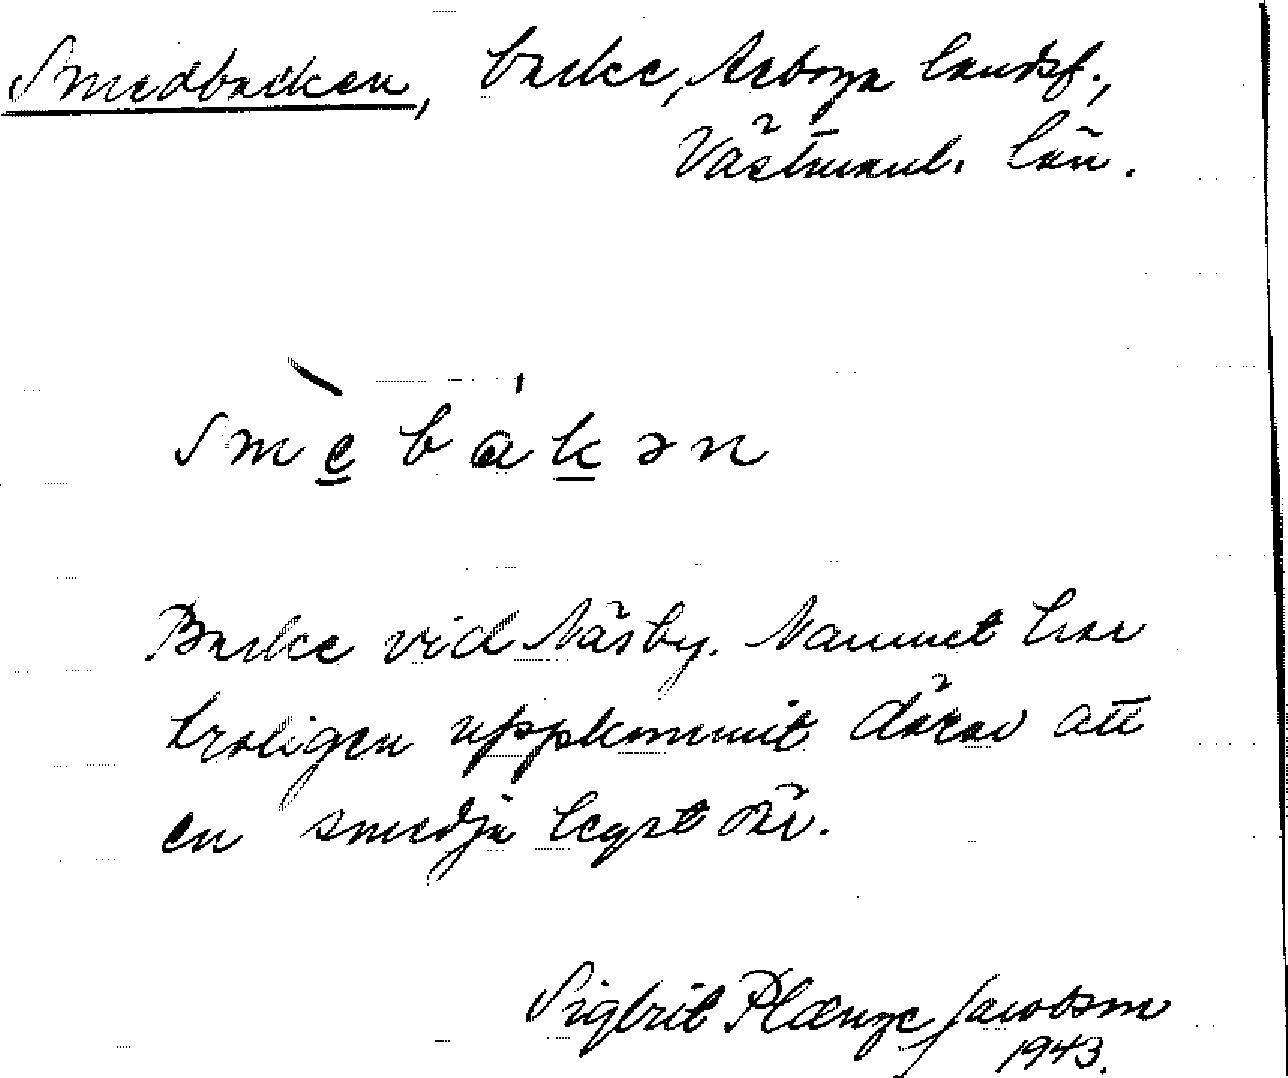 Smedbacken, backe, Arboga landsf.,
Västmanl. län.
smèbákən
Backe vid Näsby. Namnet har
troligen uppkommit därav att
en smedja legat där.
Sigbrit Plænge Jacobson
1943.